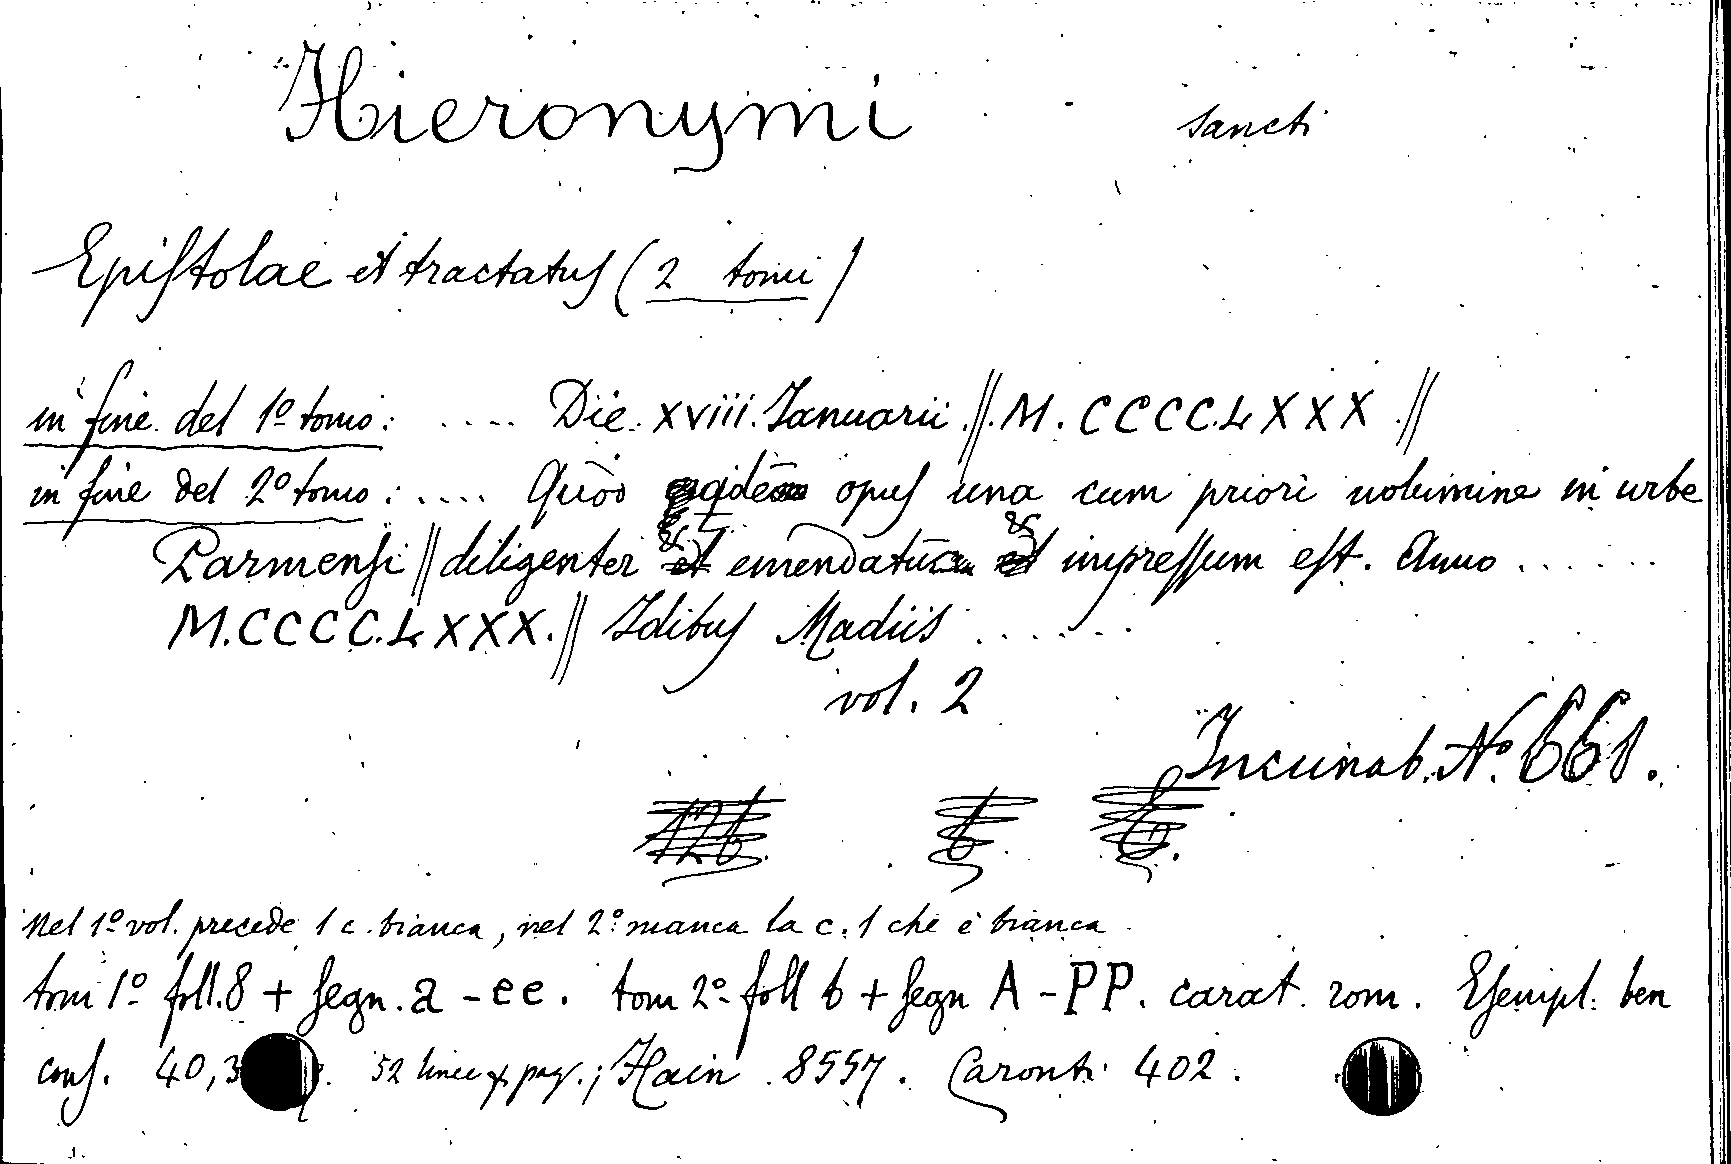 Hieronymi sancti
Epistolae et tractatus (2 tomi)
in fine del 1º tomo: .... Die. XVIII. Ianuarii.//.M.CCCC.LXXX.//
in fine del 2º tomo: .... Quod qidē opus una cum priori uolumine in urbe
Parmensi // diligenter & emendatū & impressum est. Anno ......
M.CCCC.LXXX.// Idibus Madiis ......
vol. 2
Incunab. Nº 661.
126. 6 6.
Nel 1º vol. precede 1 c. bianca, nel 2º manca la c. 1 che è bianca
tom 1º foll. 8 + segn. a - ee. tom 2º foll 6 + segn A - PP. carat. rom. Esempl. ben
cons. 40,3 52 linee x pag.; Hain 8557. Caronti 402.